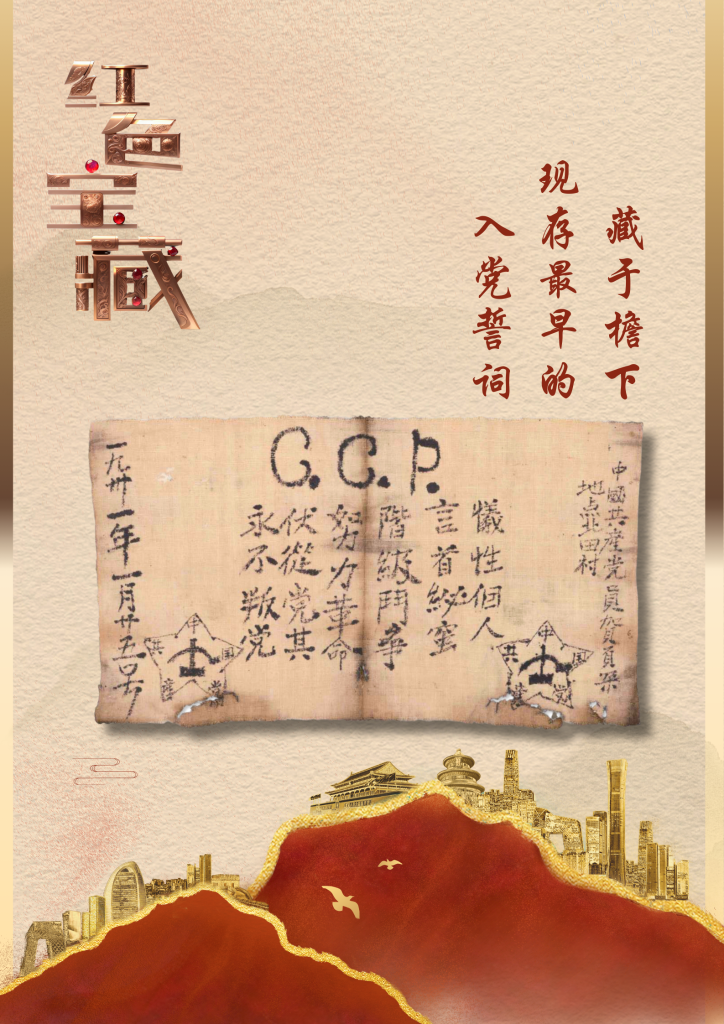 红色宝藏
藏于檐下
现存最早的
入党誓词
C.C.P.
中國共產党員贺頁樑
地点北田村
犠性個人
言首秘蜜
階級鬥争
努力革命
伏從党其
永不叛党
一九卅一年一月廿五号
中国共產党
中国共產党